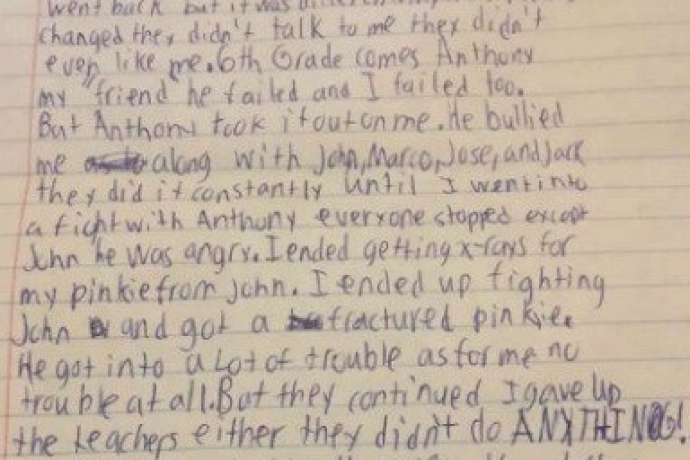 went back but it was
changed they didn't talk to me they didn't
even like me. 6th Grade comes Anthony
my "friend" he failed and I failed too.
But Anthony took it out on me. He bullied
me along with John, Marco, Jose, and Jack
they did it constantly until I went into
a fight with Anthony everyone stopped except
John he was angry. I ended getting x-rays for
my pinkie from John. I ended up fighting
John and got a fractured pinkie.
He got into a Lot of trouble as for me no
trouble at all. But they continued I gave up
the teachers either they didn't do ANYTHING!